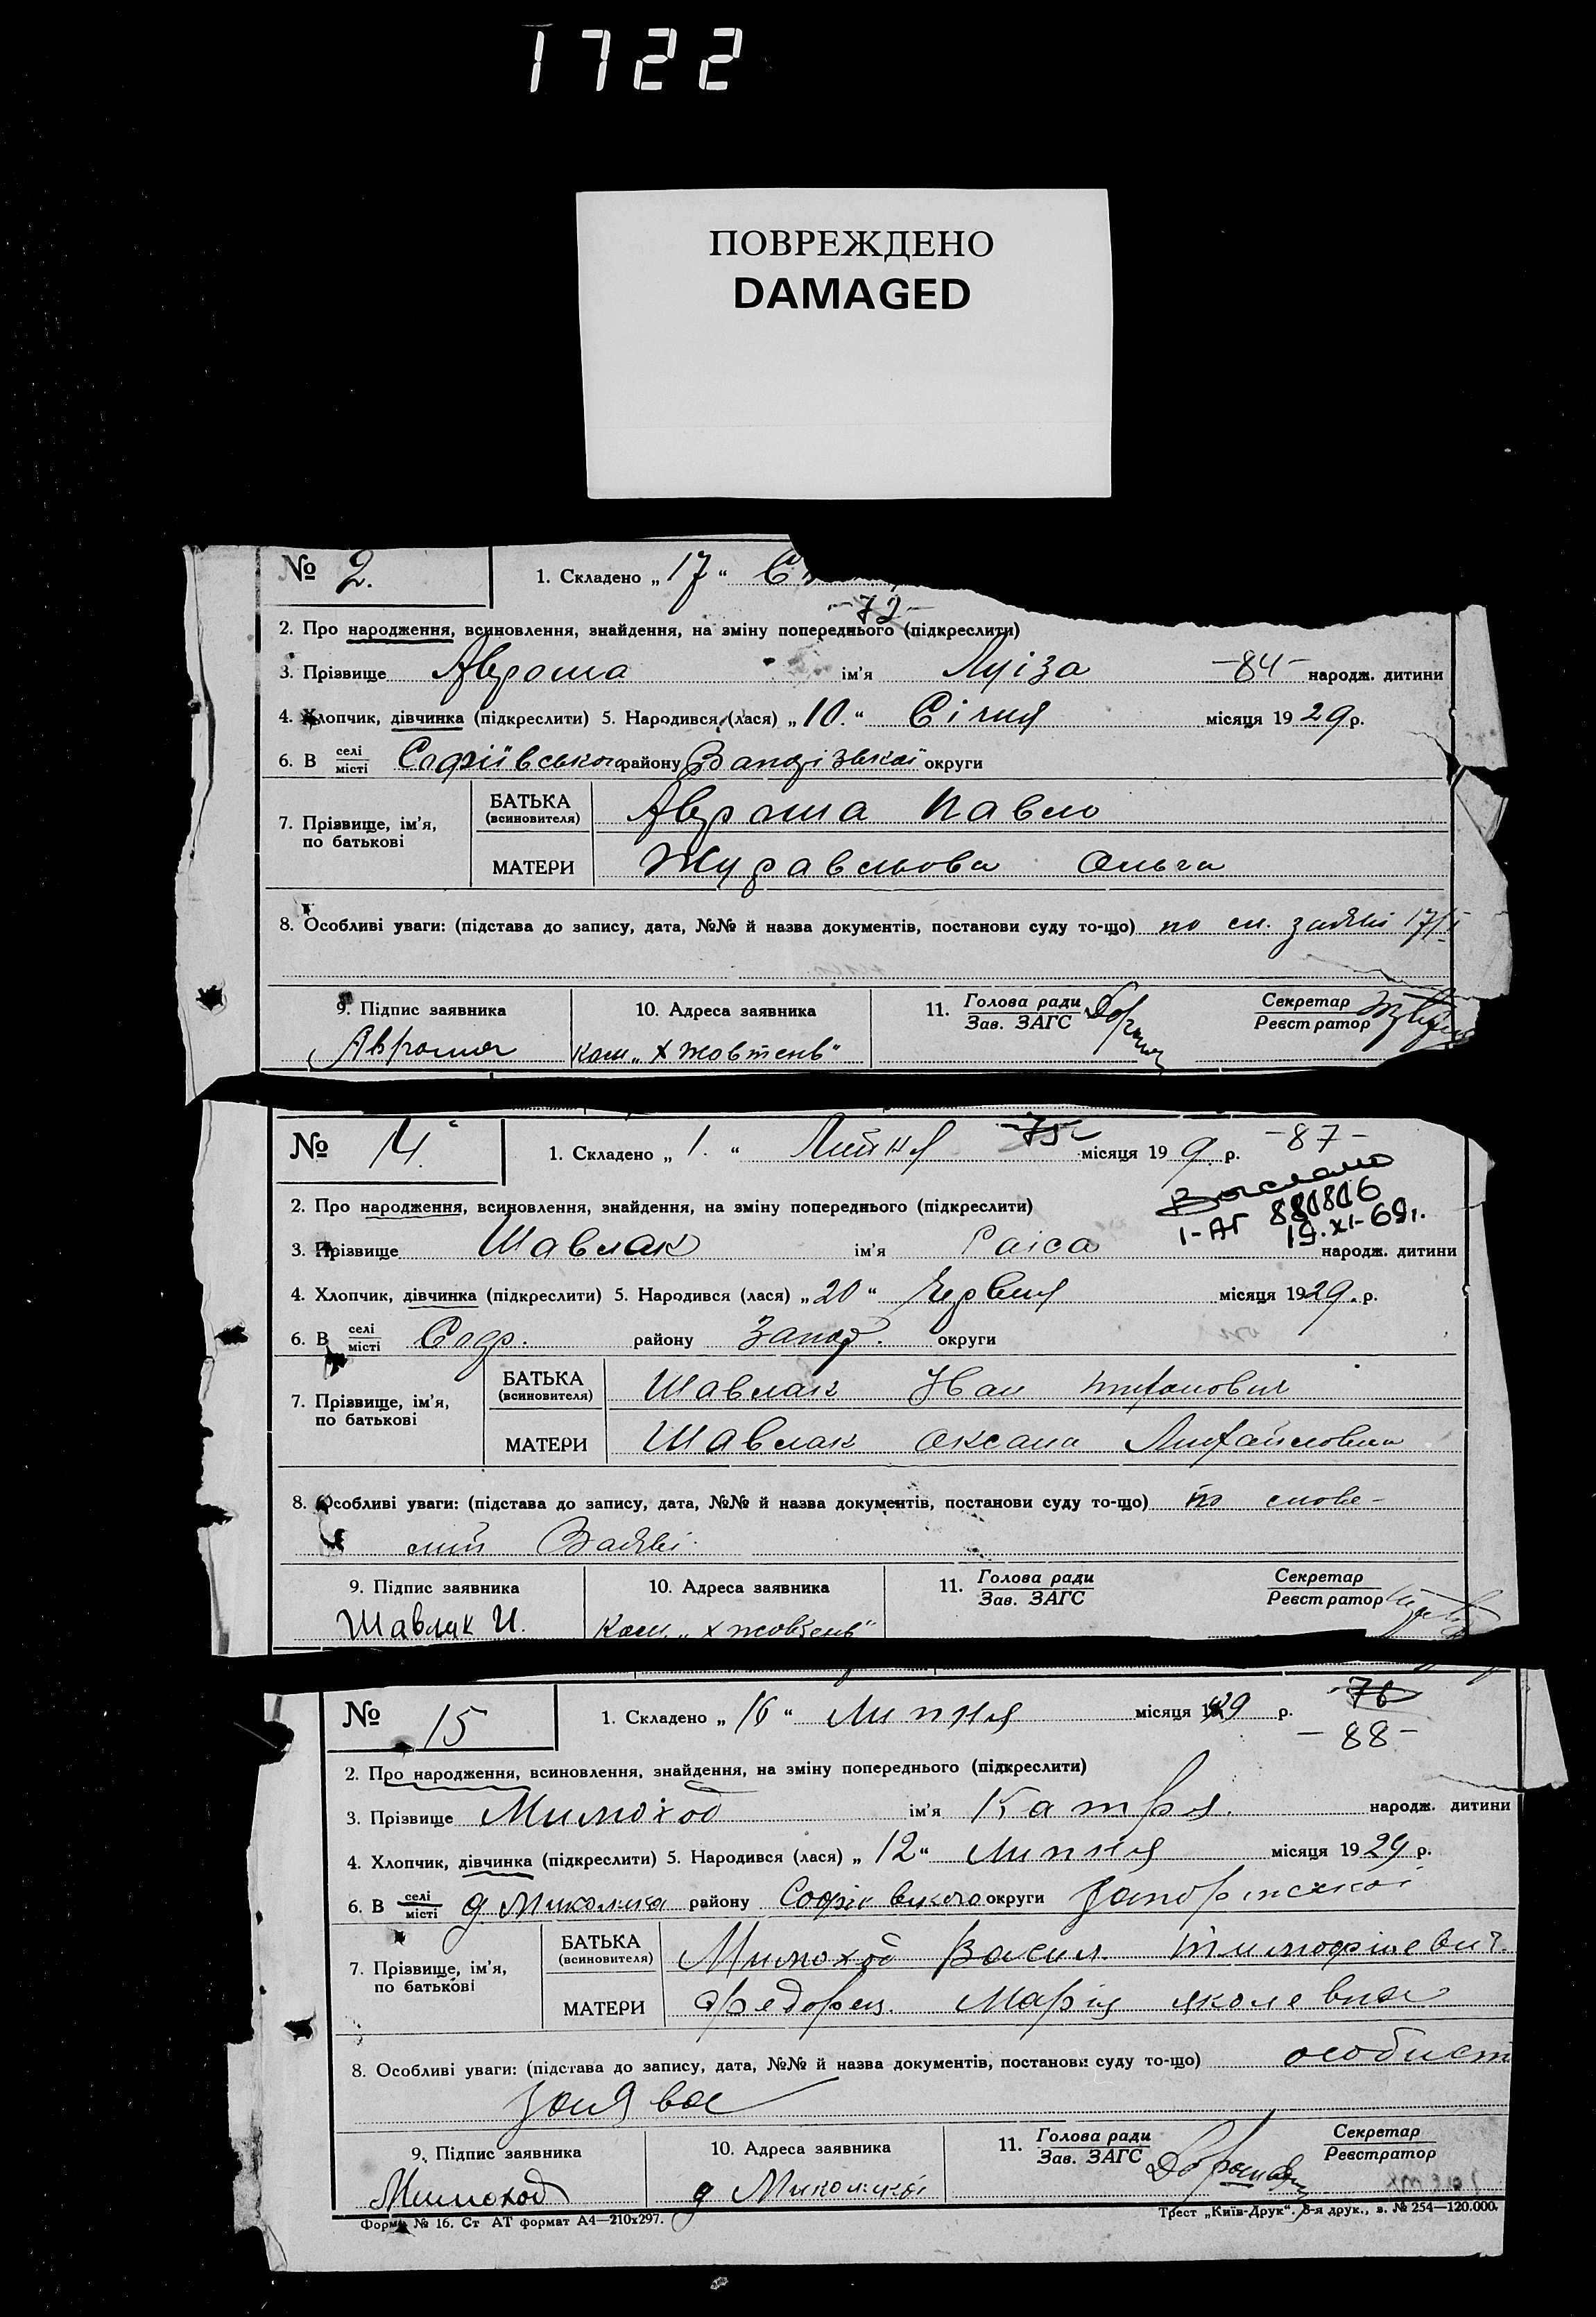 1722
ПОВРЕЖДЕНО
DAMAGED
№ 2. 1. Складено „17“
-72-
2. Про народження, всиновлення, знайдення, на зміну попереднього (підкреслити)
3. Прізвище Авроша ім'я Луіза -84- народж. дитини
4. Хлопчик, дівчинка (підкреслити) 5. Народився (лася) „10.“ Січня місяця 1929 р.
6. В селі/місті Софіївського району округи
7. Прізвище, ім'я, по батькові БАТЬКА (всиновителя) Авроша Павло
МАТЕРИ Журавльова Ольга
8. Особливі уваги: (підстава до запису, дата, №№ й назва документів, постанови суду то-що) по сл. заяві 17/I
9. Підпис заявника 10. Адреса заявника 11. Голова ради/Зав. ЗАГС Секретар/Реєстратор
Авроша Ком. „X жовтень“
№ 14. 1. Складено „1.“ Липня 75 місяця 19 9 р. -87-
2. Про народження, всиновлення, знайдення, на зміну попереднього (підкреслити)
Выслано
I-АГ 880806
19.XI-69г.
3. Прізвище Шавлак ім'я Раіса народж. дитини
4. Хлопчик, дівчинка (підкреслити) 5. Народився (лася) „20“ Червня місяця 1929. р.
6. В селі/місті Соф. району Запор. округи
7. Прізвище, ім'я, по батькові БАТЬКА (всиновителя) Шавлак
МАТЕРИ Шавлак Оксана
8. Особливі уваги: (підстава до запису, дата, №№ й назва документів, постанови суду то-що) по слове-
сній Заяві
9. Підпис заявника 10. Адреса заявника 11. Голова ради/Зав. ЗАГС Секретар/Реєстратор
Шавлак И. Ком. „X жовтень“
№ 15 1. Складено „16“ Липня місяця 1929 р. 76
-88-
2. Про народження, всиновлення, знайдення, на зміну попереднього (підкреслити)
3. Прізвище Мимоход ім'я Катря. народж. дитини
4. Хлопчик, дівчинка (підкреслити) 5. Народився (лася) „12“ Липня місяця 1929 р.
6. В селі/місті району Софіївського округи
7. Прізвище, ім'я, по батькові БАТЬКА (всиновителя) Мимоход Васил. Тимофіієвич.
МАТЕРИ Федорец. Марія яколевна
8. Особливі уваги: (підстава до запису, дата, №№ й назва документів, постанови суду то-що) особист
заява
9. Підпис заявника 10. Адреса заявника 11. Голова ради/Зав. ЗАГС Секретар/Реєстратор
Мимоход
Форма № 16. Ст АТ формат А4—210x297. Трест „Київ-Друк“. 3-я друк., з. № 254—120.000.